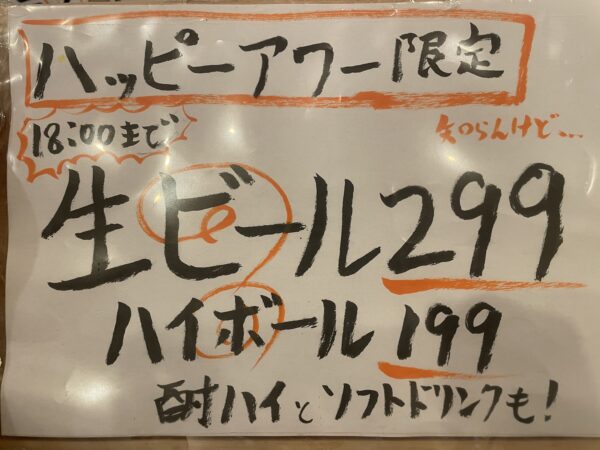 ハッピーアワー限定
18:00まで
知らんけど...
生ビール299
ハイボール199
酎ハイとソフトドリンクも!